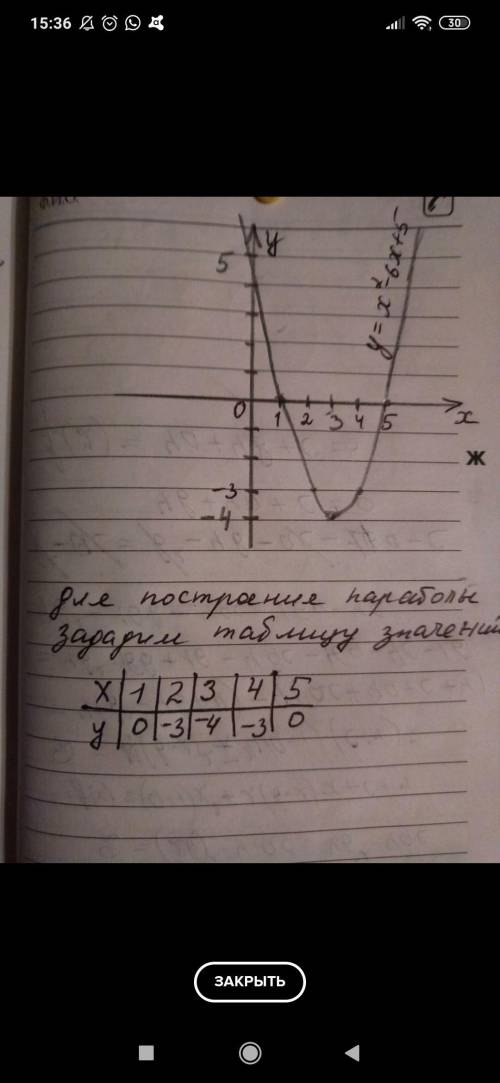 15:36
30
5
y
y = x² - 6x + 5
0
1 2 3 4 5
x
ж
-3
-4
для построения параболы
зададим таблицу значений
x | 1 | 2 | 3 | 4 | 5
y | 0 | -3 | -4 | -3 | 0
ЗАКРЫТЬ